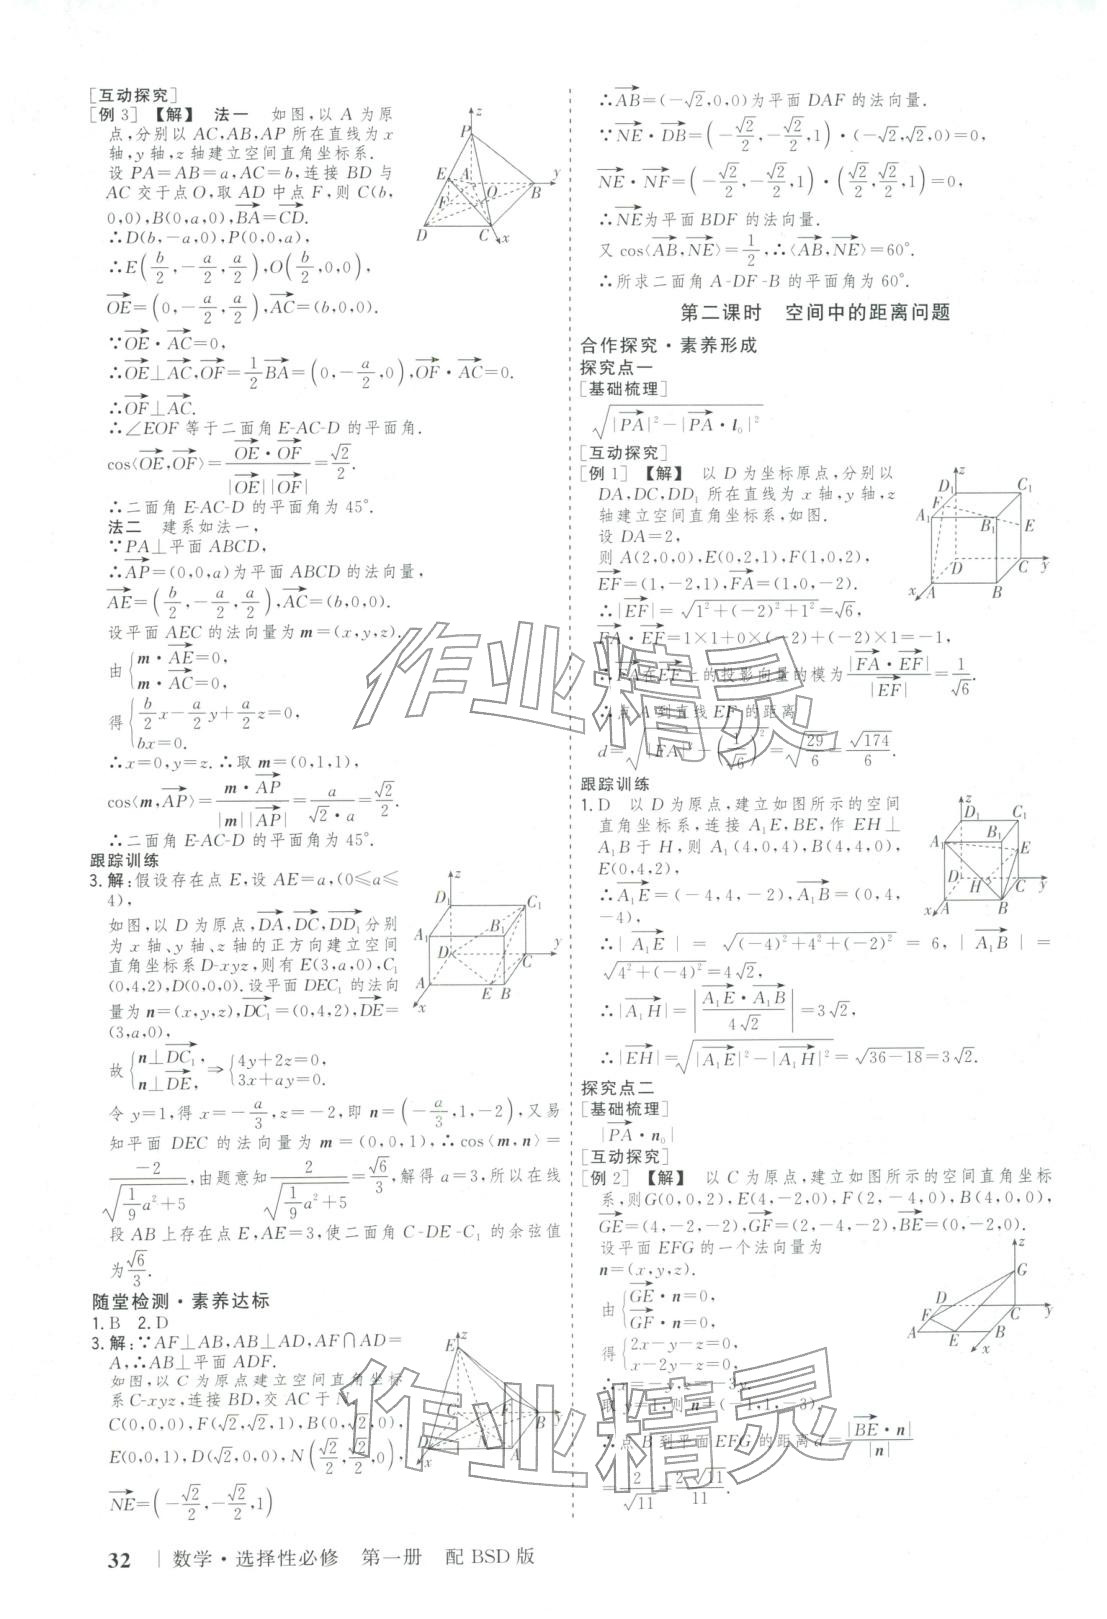 [互动探究]
[例 3] 【解】 法一 如图,以 A 为原
点,分别以 AC,AB,AP 所在直线为 x
轴,y 轴,z 轴建立空间直角坐标系.
设 PA=AB=a,AC=b,连接 BD 与
AC 交于点 O,取 AD 中点 F,则 C(b,
0,0),B(0,a,0),$\overrightarrow{BA}=\overrightarrow{CD}$.
∴D(b,-a,0),P(0,0,a),
∴$E\left(\frac{b}{2},-\frac{a}{2},\frac{a}{2}\right),O\left(\frac{b}{2},0,0\right)$,
$\overrightarrow{OE}=\left(0,-\frac{a}{2},\frac{a}{2}\right),\overrightarrow{AC}=(b,0,0)$.
∵$\overrightarrow{OE}·\overrightarrow{AC}=0$,
∴$\overrightarrow{OE}⊥\overrightarrow{AC},\overrightarrow{OF}=\frac{1}{2}\overrightarrow{BA}=\left(0,-\frac{a}{2},0\right),\overrightarrow{OF}·\overrightarrow{AC}=0$.
∴$\overrightarrow{OF}⊥\overrightarrow{AC}$.
∴∠EOF 等于二面角 E-AC-D 的平面角.
$\cos\langle\overrightarrow{OE},\overrightarrow{OF}\rangle=\frac{\overrightarrow{OE}·\overrightarrow{OF}}{|\overrightarrow{OE}||\overrightarrow{OF}|}=\frac{\sqrt{2}}{2}$.
∴二面角 E-AC-D 的平面角为 45°.
法二 建系如法一,
∵PA⊥平面 ABCD,
∴$\overrightarrow{AP}=(0,0,a)$为平面 ABCD 的法向量,
$\overrightarrow{AE}=\left(\frac{b}{2},-\frac{a}{2},\frac{a}{2}\right),\overrightarrow{AC}=(b,0,0)$.
设平面 AEC 的法向量为 m=(x,y,z).
由$\begin{cases}m·\overrightarrow{AE}=0,\\m·\overrightarrow{AC}=0,\end{cases}$
得$\begin{cases}\frac{b}{2}x-\frac{a}{2}y+\frac{a}{2}z=0,\\bx=0.\end{cases}$
∴x=0,y=z. ∴取 m=(0,1,1),
$\cos\langle m,\overrightarrow{AP}\rangle=\frac{m·\overrightarrow{AP}}{|m||\overrightarrow{AP}|}=\frac{a}{\sqrt{2}·a}=\frac{\sqrt{2}}{2}$.
∴二面角 E-AC-D 的平面角为 45°.
跟踪训练
3. 解:假设存在点 E,设 AE=a,(0≤a≤
4),
如图,以 D 为原点,$\overrightarrow{DA},\overrightarrow{DC},\overrightarrow{DD_1}$分别
为 x 轴、y 轴、z 轴的正方向建立空间
直角坐标系 D-xyz,则有 E(3,a,0),C₁
(0,4,2),D(0,0,0).设平面 DEC₁ 的法向
量为 n=(x,y,z),$\overrightarrow{DC_1}=(0,4,2),\overrightarrow{DE}=$
(3,a,0),
故$\begin{cases}n⊥\overrightarrow{DC_1},\\n⊥\overrightarrow{DE},\end{cases}⇒\begin{cases}4y+2z=0,\\3x+ay=0.\end{cases}$
令 y=1,得 $x=-\frac{a}{3}$,z=-2,即 $n=\left(-\frac{a}{3},1,-2\right)$,又易
知平面 DEC 的法向量为 m=(0,0,1),∴cos⟨m,n⟩=
$\frac{-2}{\sqrt{\frac{1}{9}a^2+5}}$,由题意知$\frac{2}{\sqrt{\frac{1}{9}a^2+5}}=\frac{\sqrt{6}}{3}$,解得 a=3,所以在线
段 AB 上存在点 E,AE=3,使二面角 C-DE-C₁ 的余弦值
为$\frac{\sqrt{6}}{3}$.
随堂检测·素养达标
1. B 2. D
3. 解:∵AF⊥AB,AB⊥AD,AF∩AD=
A,∴AB⊥平面 ADF.
如图,以 C 为原点建立空间直角坐标
系 C-xyz,连接 BD,交 AC 于 N,
C(0,0,0),F(√2,√2,1),B(0,√2,0),
$E(0,0,1),D(\sqrt{2},0,0),N\left(\frac{\sqrt{2}}{2},\frac{\sqrt{2}}{2},0\right)$,
$\overrightarrow{NE}=\left(-\frac{\sqrt{2}}{2},-\frac{\sqrt{2}}{2},1\right)$
∴$\overrightarrow{AB}=(-\sqrt{2},0,0)$为平面 DAF 的法向量.
∵$\overrightarrow{NE}·\overrightarrow{DB}=\left(-\frac{\sqrt{2}}{2},-\frac{\sqrt{2}}{2},1\right)·(-\sqrt{2},\sqrt{2},0)=0$,
$\overrightarrow{NE}·\overrightarrow{NF}=\left(-\frac{\sqrt{2}}{2},-\frac{\sqrt{2}}{2},1\right)·\left(\frac{\sqrt{2}}{2},\frac{\sqrt{2}}{2},1\right)=0$,
∴$\overrightarrow{NE}$为平面 BDF 的法向量.
又 $\cos\langle\overrightarrow{AB},\overrightarrow{NE}\rangle=\frac{1}{2}$,∴$\langle\overrightarrow{AB},\overrightarrow{NE}\rangle=60°$.
∴所求二面角 A-DF-B 的平面角为 60°.
第二课时 空间中的距离问题
合作探究·素养形成
探究点一
[基础梳理]
$\sqrt{|\overrightarrow{PA}|^2-|\overrightarrow{PA}·l_0|^2}$
[互动探究]
[例 1] 【解】 以 D 为坐标原点,分别以
DA,DC,DD₁ 所在直线为 x 轴,y 轴,z
轴建立空间直角坐标系,如图.
设 DA=2,
则 A(2,0,0),E(0,2,1),F(1,0,2),
$\overrightarrow{EF}=(1,-2,1),\overrightarrow{FA}=(1,0,-2)$.
∴$|\overrightarrow{EF}|=\sqrt{1^2+(-2)^2+1^2}=\sqrt{6}$,
$\overrightarrow{FA}·\overrightarrow{EF}=1×1+0×(-2)+(-2)×1=-1$,
∴$\overrightarrow{FA}$在$\overrightarrow{EF}$上的投影向量的模为$\frac{|\overrightarrow{FA}·\overrightarrow{EF}|}{|\overrightarrow{EF}|}=\frac{1}{\sqrt{6}}$.
∴点 A 到直线 EF 的距离
$d=\sqrt{|\overrightarrow{FA}|^2-\left(\frac{1}{\sqrt{6}}\right)^2}=\sqrt{\frac{29}{6}}=\frac{\sqrt{174}}{6}$.
跟踪训练
1. D 以 D 为原点,建立如图所示的空间
直角坐标系,连接 A₁E,BE,作 EH⊥
A₁B 于 H,则 A₁(4,0,4),B(4,4,0),
E(0,4,2),
∴$\overrightarrow{A_1E}=(-4,4,-2),\overrightarrow{A_1B}=(0,4,$
-4),
∴$|\overrightarrow{A_1E}|=\sqrt{(-4)^2+4^2+(-2)^2}=6,|\overrightarrow{A_1B}|=$
$\sqrt{4^2+(-4)^2}=4\sqrt{2}$,
∴$|\overrightarrow{A_1H}|=\left|\frac{\overrightarrow{A_1E}·\overrightarrow{A_1B}}{4\sqrt{2}}\right|=3\sqrt{2}$,
∴$|\overrightarrow{EH}|=\sqrt{|\overrightarrow{A_1E}|^2-|\overrightarrow{A_1H}|^2}=\sqrt{36-18}=3\sqrt{2}$.
探究点二
[基础梳理]
$|\overrightarrow{PA}·n_0|$
[互动探究]
[例 2] 【解】 以 C 为原点,建立如图所示的空间直角坐标
系,则G(0,0,2),E(4,-2,0),F(2,-4,0),B(4,0,0),
$\overrightarrow{GE}=(4,-2,-2),\overrightarrow{GF}=(2,-4,-2),\overrightarrow{BE}=(0,-2,0)$.
设平面 EFG 的一个法向量为
n=(x,y,z).
由$\begin{cases}\overrightarrow{GE}·n=0,\\\overrightarrow{GF}·n=0,\end{cases}$
得$\begin{cases}2x-y-z=0,\\x-2y-z=0,\end{cases}$
∴x=-y,z=-3y.
取 y=1,则 n=(-1,1,-3),
∴点 B 到平面 EFG 的距离 $d=\frac{|\overrightarrow{BE}·n|}{|n|}$
$=\frac{2}{\sqrt{11}}=\frac{2\sqrt{11}}{11}$.
作业精灵
作业精灵
32 | 数学·选择性必修 第一册 配 BSD 版